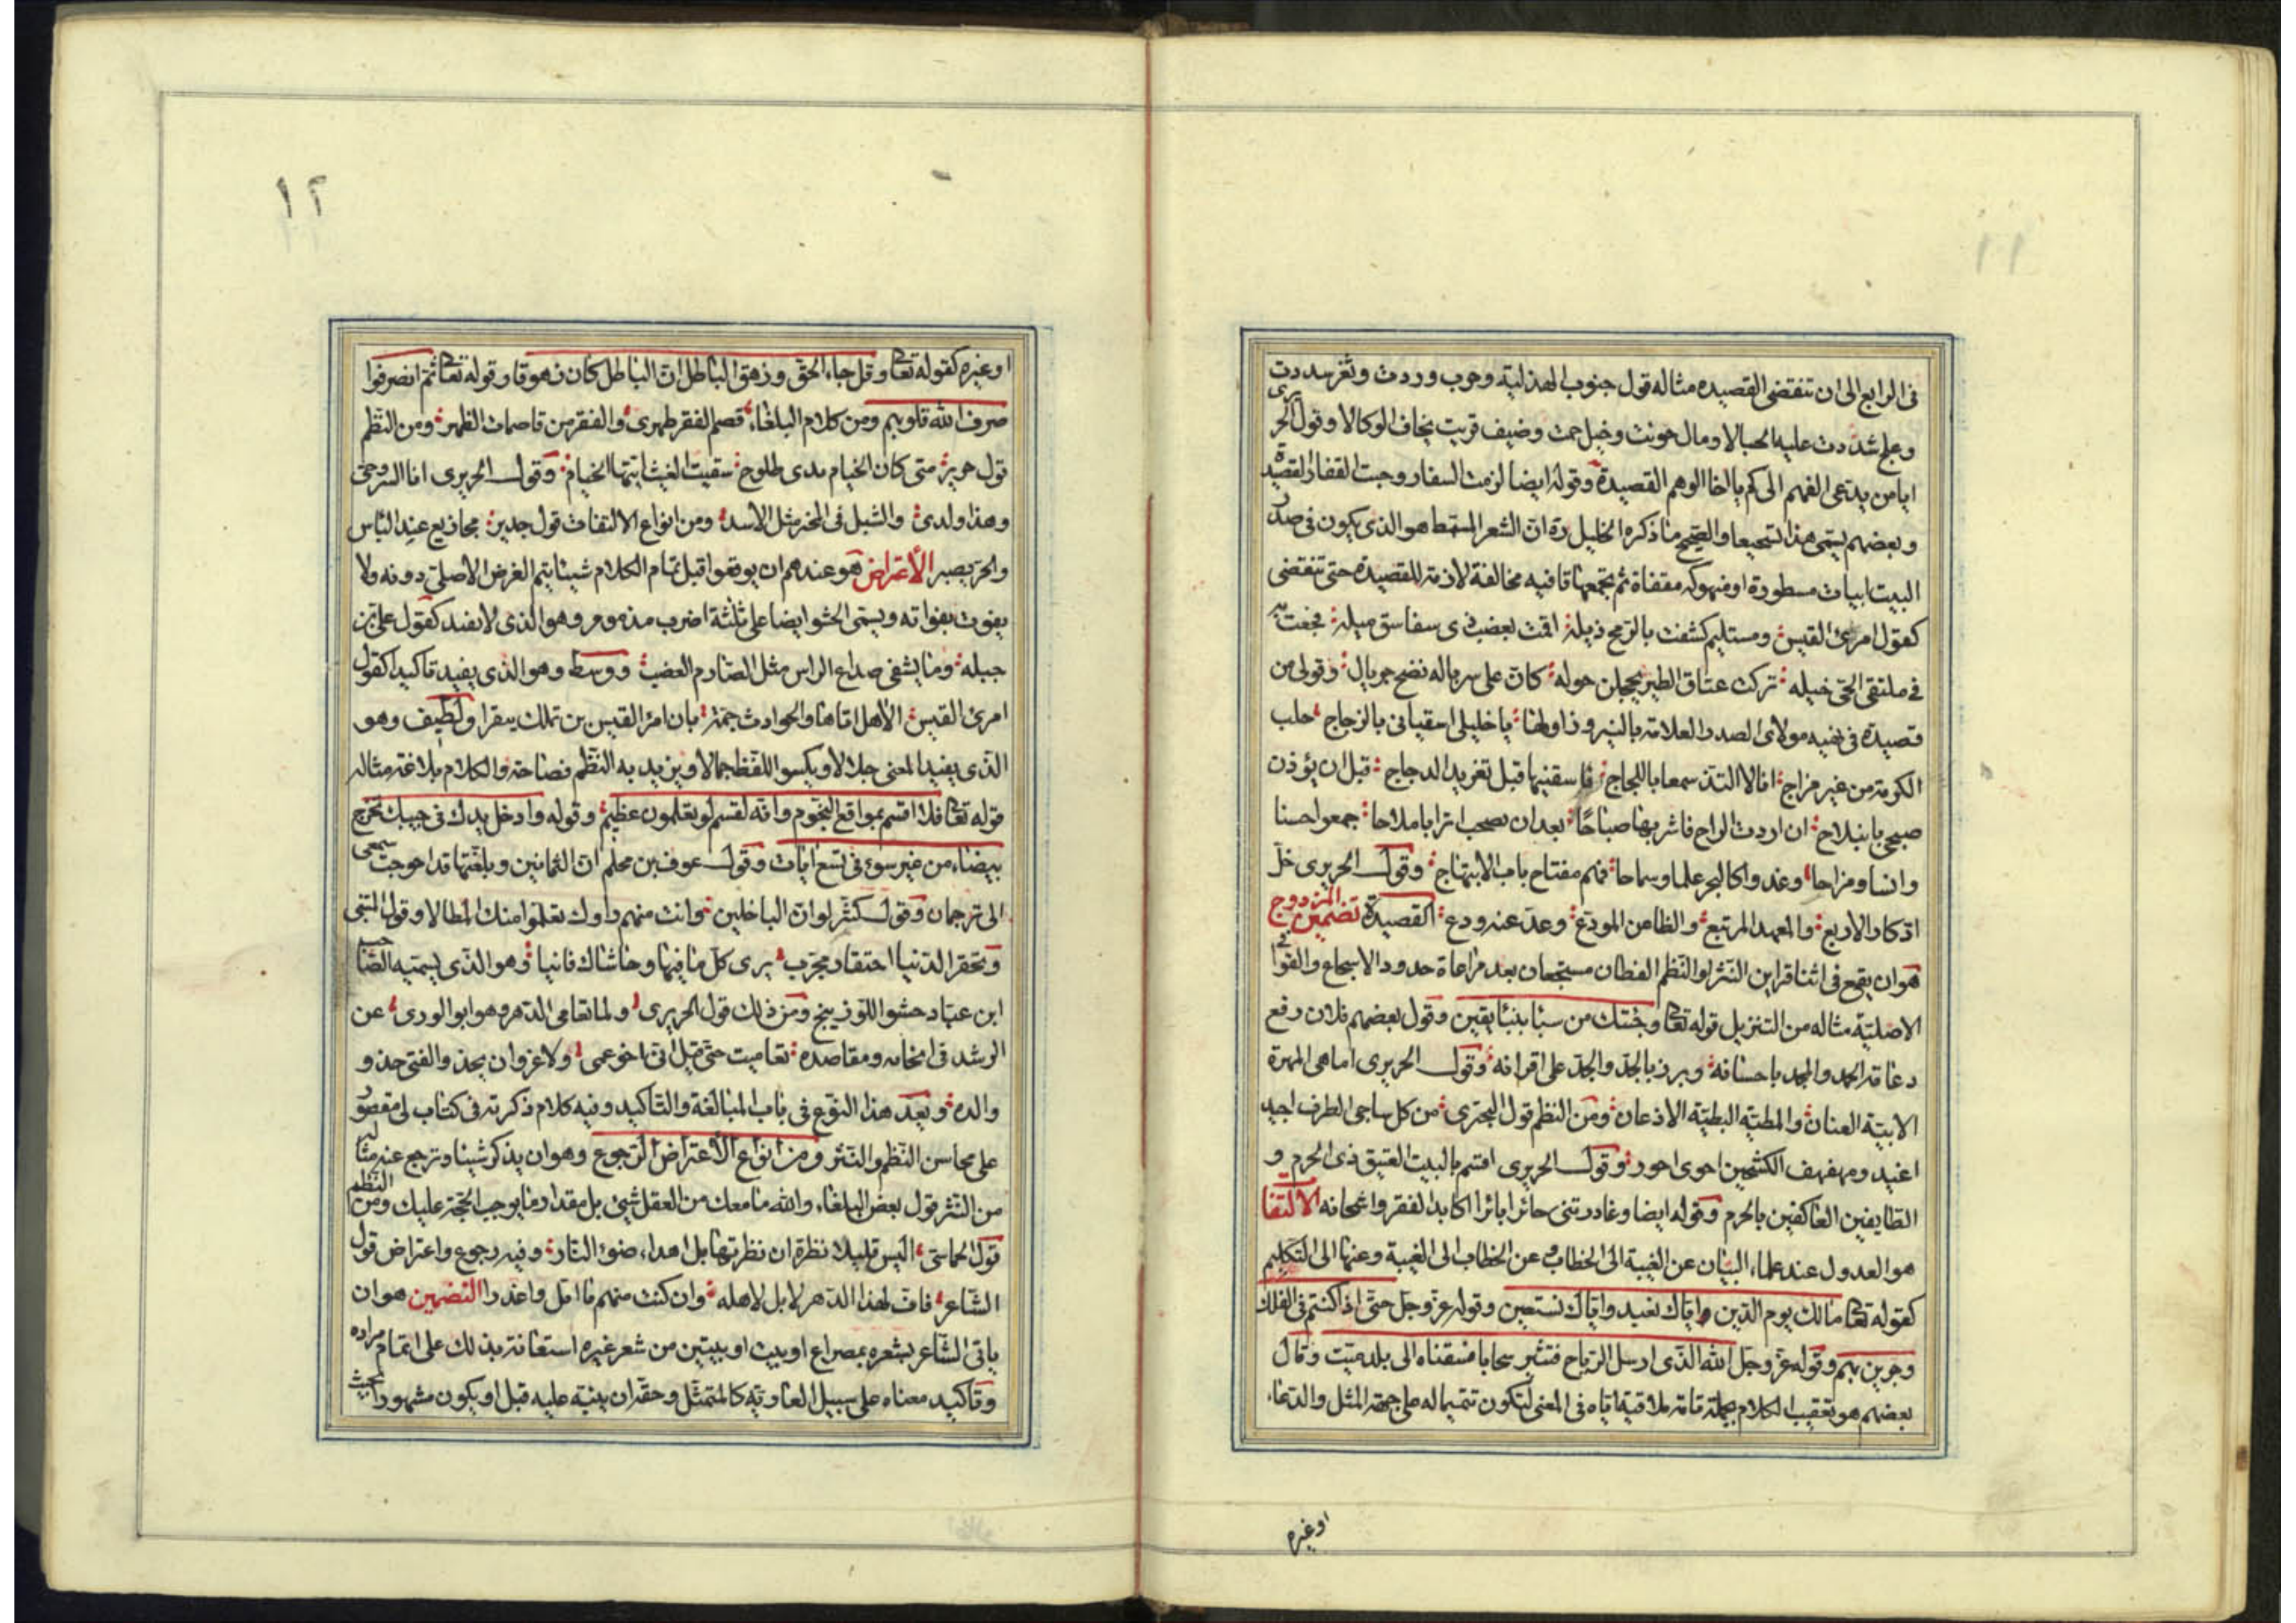 ١١
فى الرابع الى ان تنقضى القصيده مثاله قول جنوب الهذلية وحرب وردت وثغر سددت
وعلج شددت عليه الحبالا ومال حويت وخيل حمت وضيف قريت يخاف الوكالا وقول الحريرى
ايا من يدعى الفهم الى كم يا اخا الوهم القصيدة وقوله ايضا لزمت السفار وجبت القفار القصيد
وبعضهم يسمى هذا تسجيعا والصحيح ما ذكره الخليل ره ان الشعر المسمط هو الذى يكون فى صدر
البيت ابيات مسطورة او منهوكه مقفاة ثم تجمعها قافيه مخالفة لازمة للقصيدة حتى تنقضى
كقول امرئ القيس ومستليم كشفت بالرمح ذيله اقمت بعضب ذى سفاسق ميله فجعت به
فى ملتقى الحى خيله تركت عتاق الطير يحجلن حوله كان على سرباله نضح جريال وقولى من
قصيدة فى مولاى الصدر العلامة بالنيروز اولها يا خليلى اسقيانى بالزجاج حلب
الكرمة من غير مزاج انا لا التذ سمعا باللجاج فاسقنيها قبل تغريد الدجاج قبل ان يؤذن
صبحى بانبلاج ان اردت الراح فاشربها صباحا بعد ان تصحب اترابا ملاحا جمعوا حسنا
وانسا ومزاحا وغدوا كالبحر علما وسماحا فهم مفتاح باب الابتهاج وقول الحريرى خل
ادكار الاربع والمعهد المرتبع والظاعن المودع وعد عنه ودع القصيدة تضمين المزدوج
هو ان يقع فى اثنا قراين النثر او النظم لفظان مسجعان بعد مراعاة حدود الاسجاع والقوافى
الاصلية مثاله من التنزيل قوله تعا وجئتك من سبأ بنبأ يقين وقول بعضهم فلان رفع
دعامة الحمد والمجد باحسانه وبرز بالجد والجد على اقرانه وقول الحريرى اما هى المهرة
الابية العنان والمطية البطية الاذعان ومن النظم قول البحترى من كل ساجى الطرف اجيد
اغيد ومهفهف الكشحين احوى احور وقول الحريرى اقسم بالبيت العتيق ذى الحرم و
الطايفين العاكفين بالحرم وقوله ايضا وغادرتنى حائرا بائرا اكابد الفقر واشجانه الالتفا
هو العدول عند علماء البيان عن الغيبة الى الخطاب وعن الخطاب الى الغيبة وعنها الى التكليم
كقوله تعا مالك يوم الدين اياك نعبد واياك نستعين وقوله عز وجل حتى اذا كنتم فى الفلك
وجرين بهم وقوله عز وجل الله الذى ارسل الرياح فتثير سحابا فسقناه الى بلد ميت وقال
بعضهم هو تعقيب الكلام بجملة تامة ملاقية اياه فى المعنى لتكون تتميما له على جهة المثل والدعاء
او غيره
١٢
او غيره كقوله تعا وقل جاء الحق وزهق الباطل ان الباطل كان زهوقا وقوله تعا ثم انصرفوا
صرف الله قلوبهم ومن كلام البلغاء قصم الفقر ظهرى والفقر من قاصمات الظهر ومن النظم
قول جرير متى كان الخيام بذى طلوح سقيت الغيث ايتها الخيام وقول الحريرى انا السروجى
وهذا ولدى والشبل فى المخبر مثل الاسد ومن انواع الالتفات قول جرير
والحر يصبر الاعتراض هو عندهم ان يوقعوا قبل تمام الكلام شيئا يتم الغرض الاصلى دونه ولا
يفوت بفواته ويسمى الحشو ايضا على ثلثة اضرب مذموم وهو الذى لا يفيد كقول على بن
جبله وما يشفى صداع الراس مثل الصارم العضب ووسط وهو الذى يفيد تاكيدا كقول
امرئ القيس الا هل اتاها والحوادث جمة بان امرأ القيس بن تملك بيقرا ولطيف وهو
الذى يفيد المعنى جلالا ويكسو اللفظ جمالا ويزيد به النظم فصاحة والكلام بلاغة مثاله
قوله تعا فلا اقسم بمواقع النجوم وانه لقسم لو تعلمون عظيم وقوله وادخل يدك فى جيبك تخرج
بيضاء من غير سوء فى تسع ايات وقول عوف بن محلم ان الثمانين وبلغتها قد احوجت سمعى
الى ترجمان وقول كثير لو ان الباخلين وانت منهم راوك تعلموا منك المطالا وقول المتنبى
وتحتقر الدنيا احتقار مجرب يرى كل ما فيها وحاشاك فانيا وهو الذى يسميه الصاحب
ابن عباد حشو اللوزينج ومن ذلك قول الحريرى ولما تعامى الدهر وهو ابو الورى عن
الرشد فى انحائه ومقاصده تعاميت حتى قيل انى اخو عمى ولا غرو ان يحذو الفتى حذو
والده ويعد هذا النوع فى باب المبالغة والتاكيد وفيه كلام ذكرته فى كتاب لى مقصور
على محاسن النظم والنثر ومن انواع الاعتراض الرجوع وهو ان يذكر شيئا وترجع عنه مثاله
من النثر قول بعض البلغاء والله ما معك من العقل شئ بل مقدار ما يوجب الحجة عليك ومن النظم
قول الحماسى اليس قليلا نظرة ان نظرتها وفيه رجوع واعتراض قول
الشاعر فاف لهذا الدهر لا بل لاهله وان كنت منهم ما امل واعذرا التضمين هو ان
ياتى الشاعر بشعره بمصراع او بيت او بيتين من شعر غيره استعانة بذلك على اتمام مراده
وتاكيد معناه على سبيل العارية كالمتمثل وحقه ان ينبه عليه قبل او يكون مشهورا بحيث